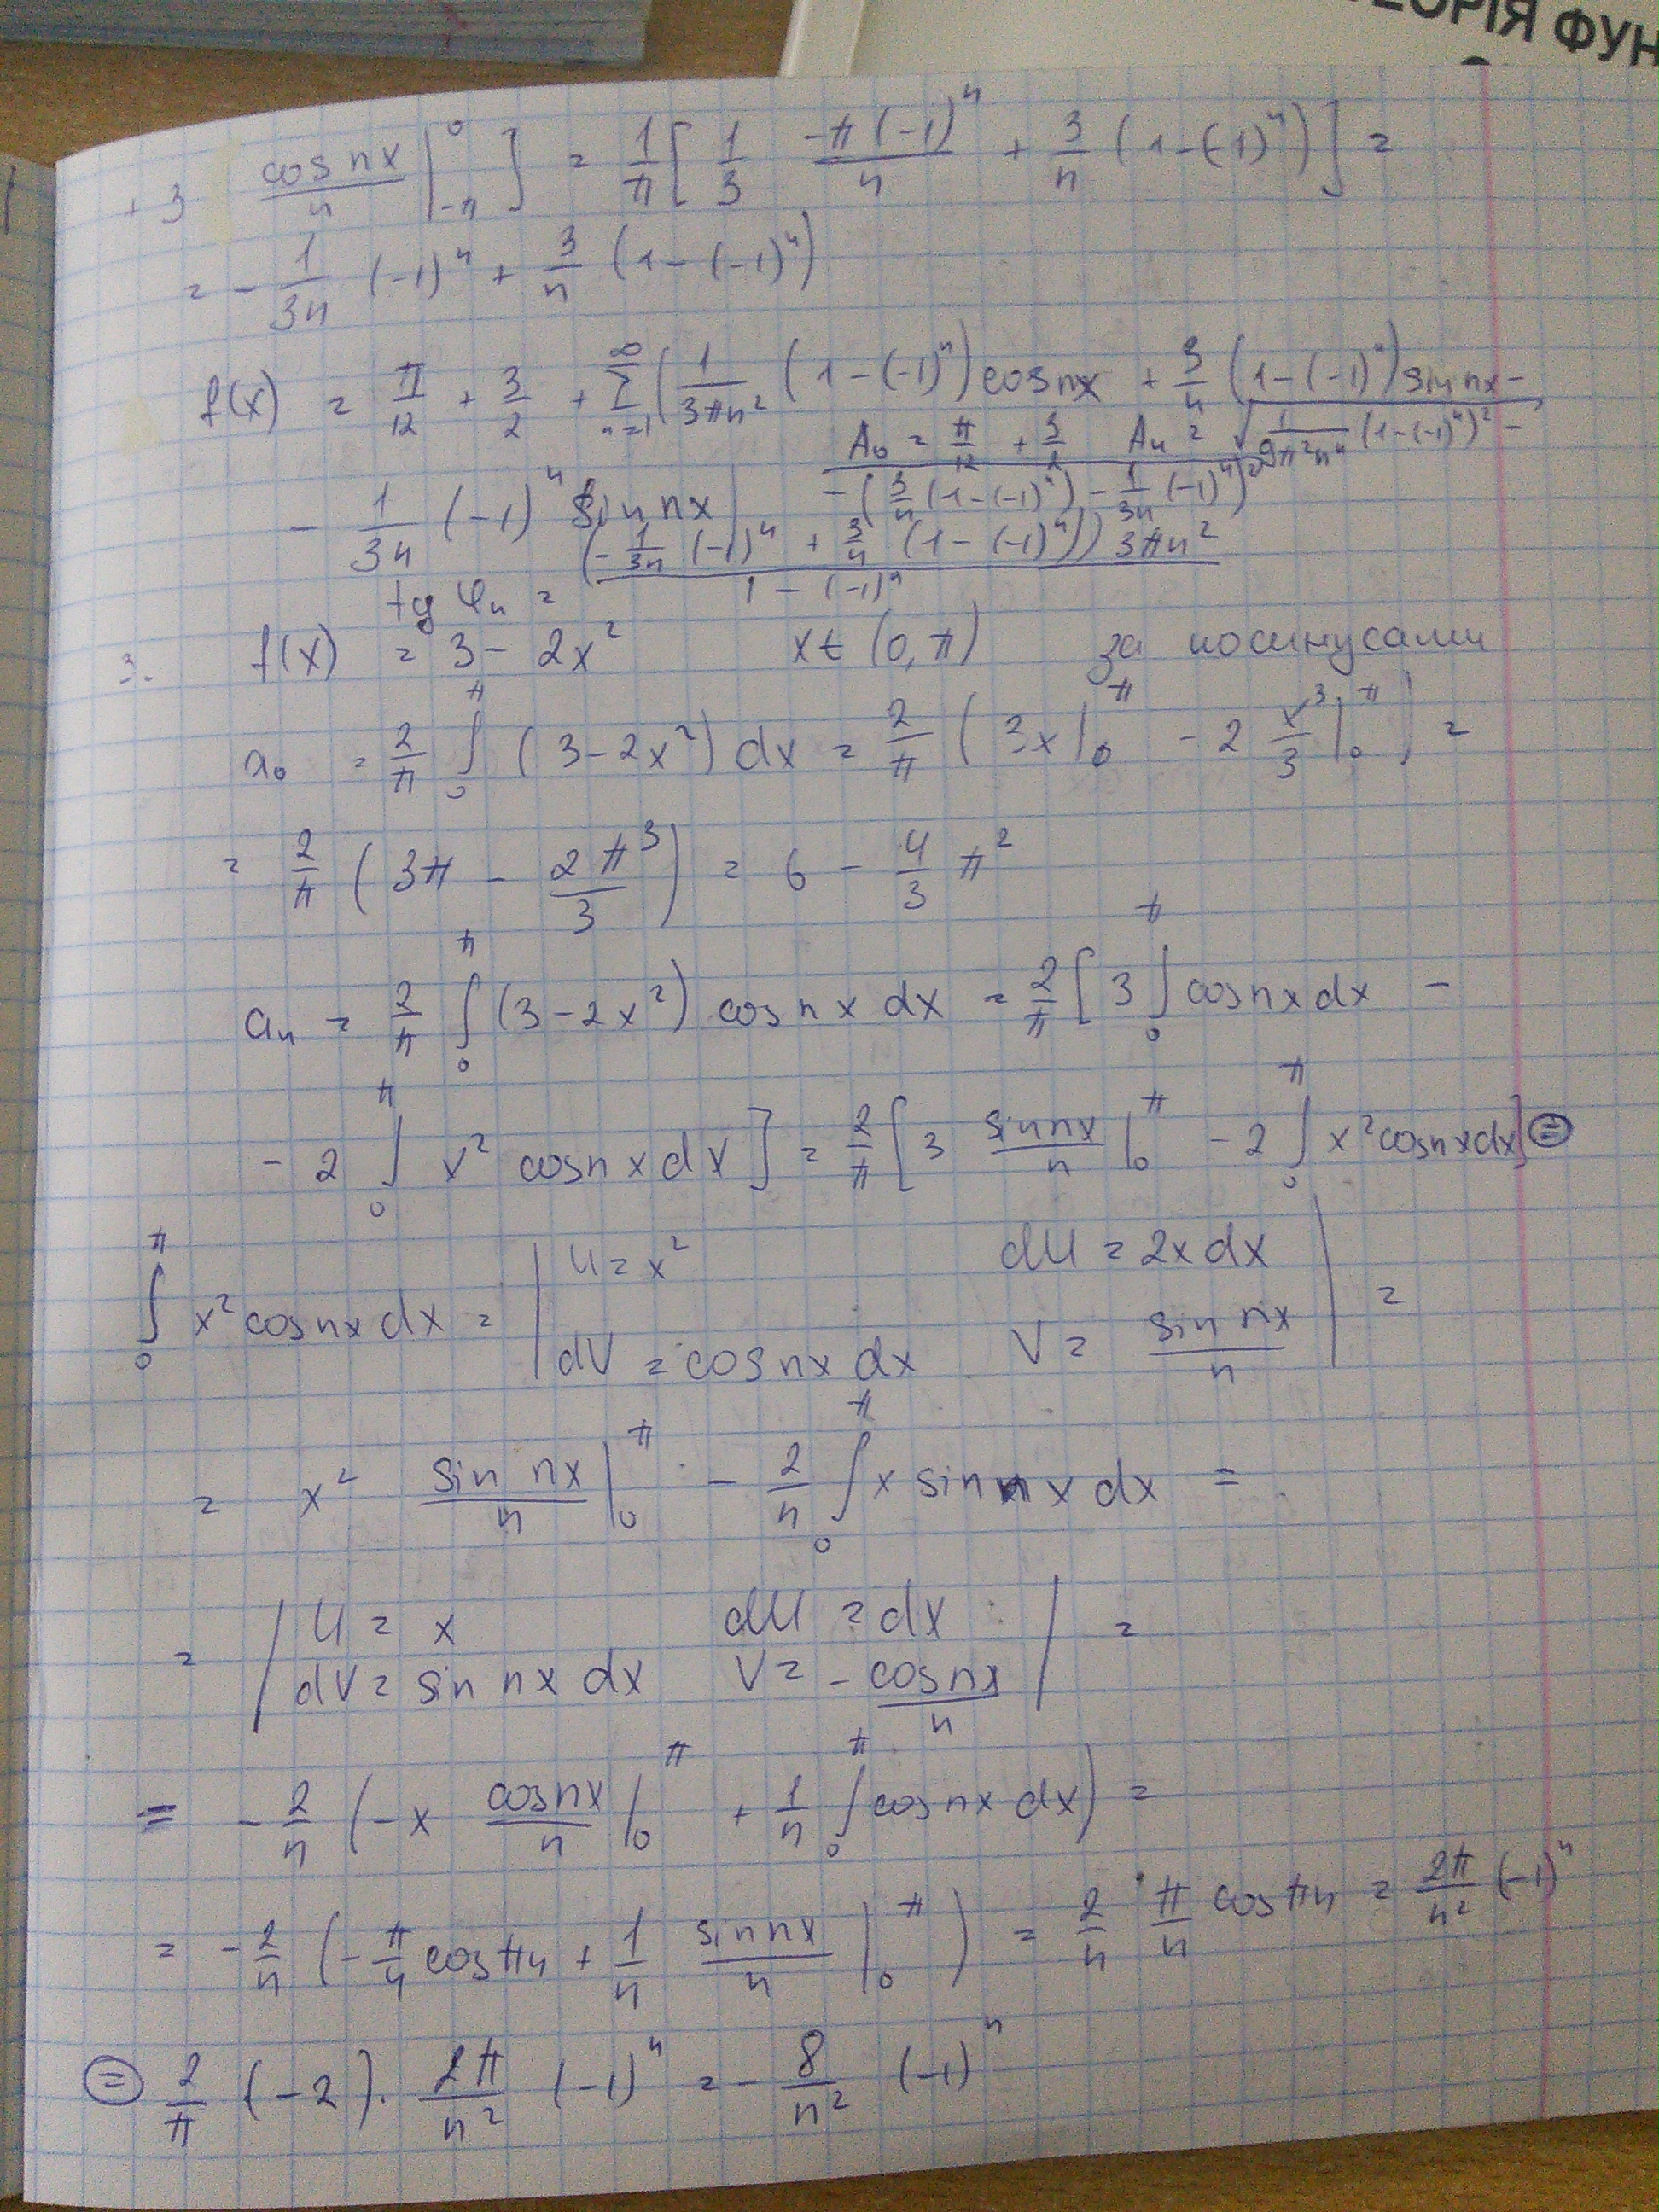 ТЕОРІЯ ФУН
+ 3 cos nx/n |_{-π}^{0} ] = 1/π [ 1/3 -π(-1)^n/n + 3/n (1-(-1)^n) ] =
= - 1/3n (-1)^n + 3/n (1-(-1)^n)
f(x) = π/12 + 3/2 + ∑_{n=1}^{∞} ( 1/3πn² (1-(-1)^n) cos nx + 3/n (1-(-1)^n) sin nx -
- 1/3n (-1)^n sin nx )
A₀ = π/12 + 3/2 Aₙ = √ 1/9π²n⁴ (1-(-1)^n)² -
- ( 3/n (1-(-1)^n) - 1/3n (-1)^n )²
tg φₙ = (- 1/3n (-1)^n + 3/n (1-(-1)^n)) 3πn² / 1-(-1)^n
3. f(x) = 3 - 2x² x ∈ (0, π) за косинусами
a₀ = 2/π ∫_0^π (3-2x²) dx = 2/π ( 3x |_0^π - 2 x³/3 |_0^π ) =
= 2/π ( 3π - 2π³/3 ) = 6 - 4/3 π²
aₙ = 2/π ∫_0^π (3-2x²) cos nx dx = 2/π [ 3 ∫_0^π cos nx dx -
- 2 ∫_0^π x² cos nx dx ] = 2/π [ 3 sin nx/n |_0^π - 2 ∫_0^π x² cos nx dx ] ⊜
∫_0^π x² cos nx dx = | U = x² dU = 2x dx | =
| dV = cos nx dx V = sin nx/n |
= x² sin nx/n |_0^π - 2/n ∫_0^π x sin nx dx =
= | U = x dU = dx | =
| dV = sin nx dx V = - cos nx/n |
= - 2/n ( -x cos nx/n |_0^π + 1/n ∫_0^π cos nx dx ) =
= - 2/n ( - π/n cos πn + 1/n sin nx/n |_0^π ) = 2/n · π/n cos πn = 2π/n² (-1)^n
⊜ 2/π (-2) · 2π/n² (-1)^n = - 8/n² (-1)^n